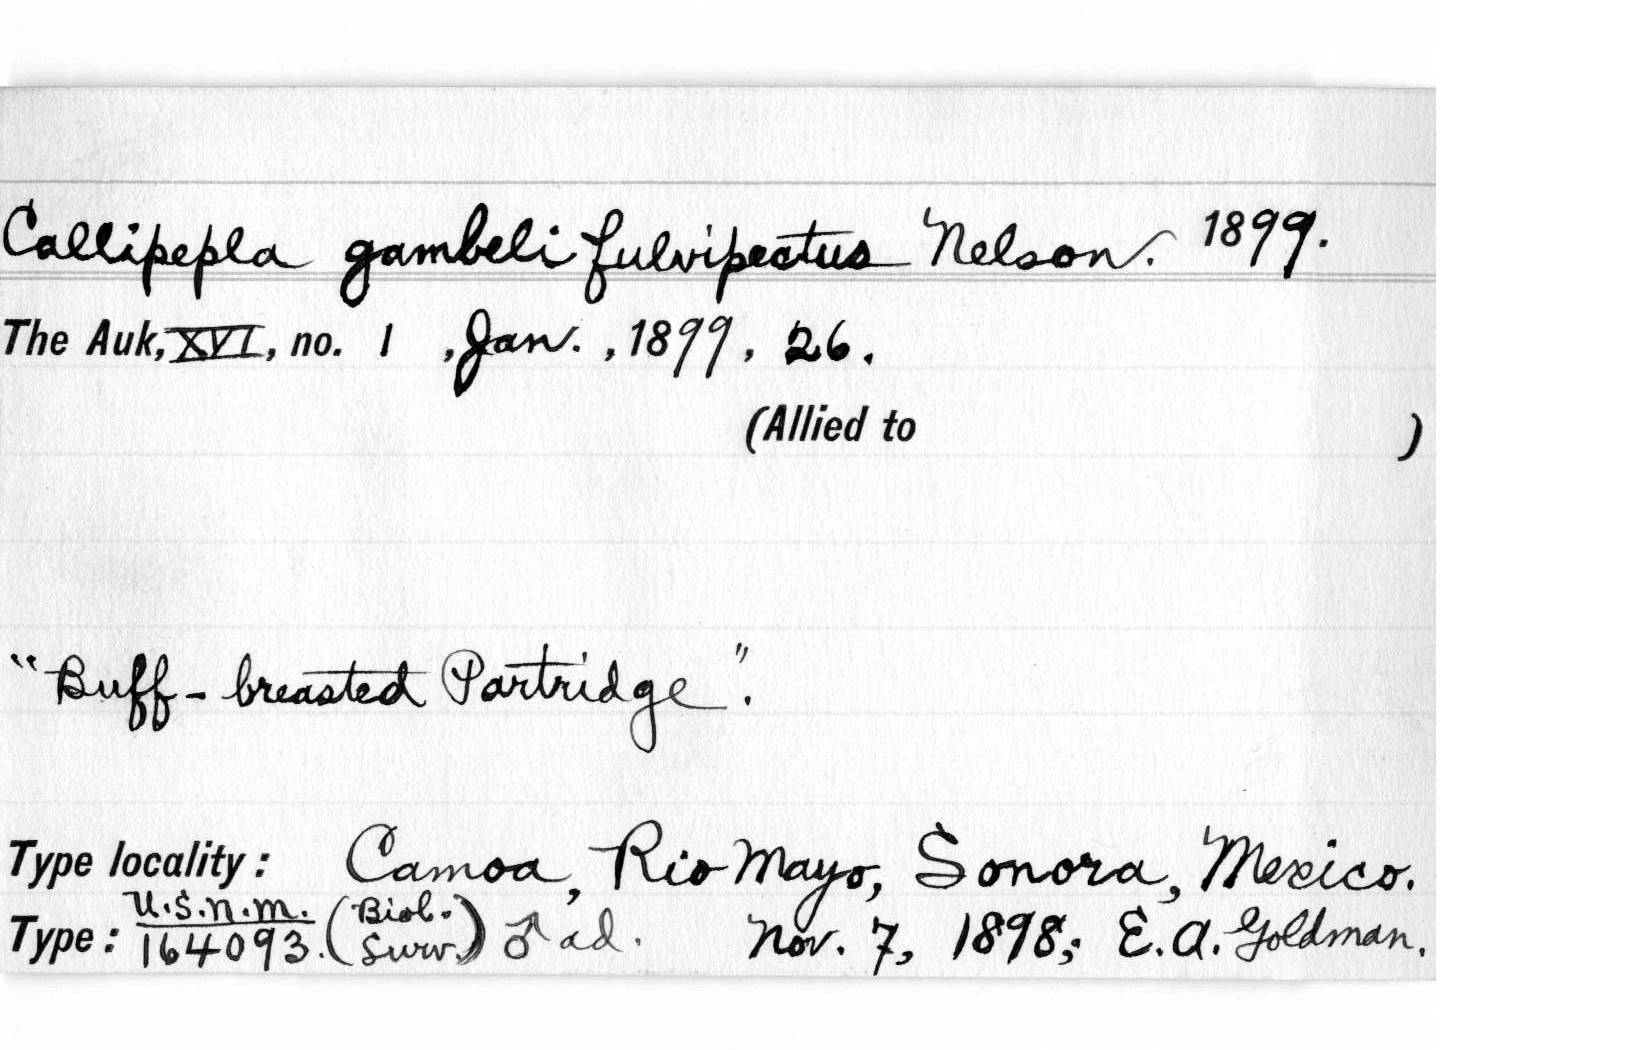 Callipepla gambeli fulvipectus Nelson. 1899.
The Auk, XVI, no. 1, Jan., 1899, 26.
(Allied to )
"Buff-breasted Partridge".
Type locality: Camoa, Rio Mayo, Sonora, Mexico.
Type: U.S.N.M. 164093. (Biol. Surv.) ♂ ad. Nov. 7, 1898; E.A. Goldman.